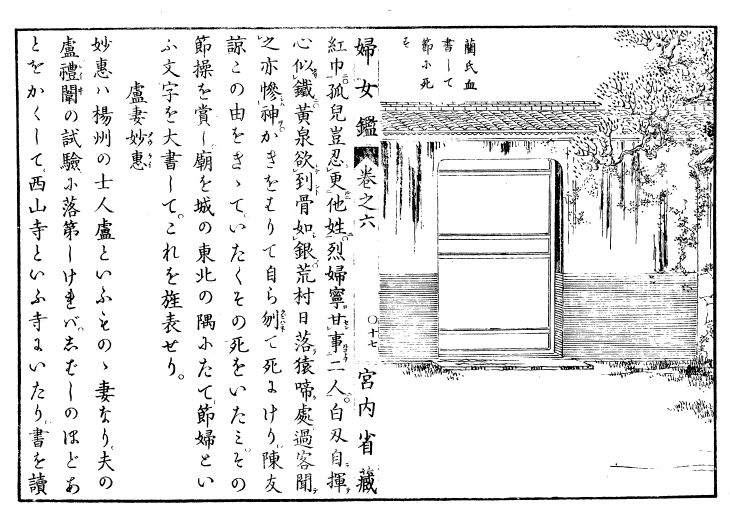 蘭氏血
書して
節に死
す
婦女鑑 卷之六 ○十七 宮内省藏
紅巾孤兒豈忍更他姓烈婦寧甘事二人白刄自揮
心似鐵黃泉欲到骨如銀荒村日落猿啼處過客聞
之亦慘神かきをはりて自ら刎て死にけり陳友
諒この由をきゝていたくその死をいたミその
節操を賞し廟を城の東北の隅にたて節婦とい
ふ文字を大書して。これを旌表せり。
盧妻妙惠
妙惠ハ楊州の士人盧といふものゝ妻なり夫の
盧禮闈の試驗に落第しけれバ志むしのほどあ
とをかくして西山寺といふ寺にいたり書を讀